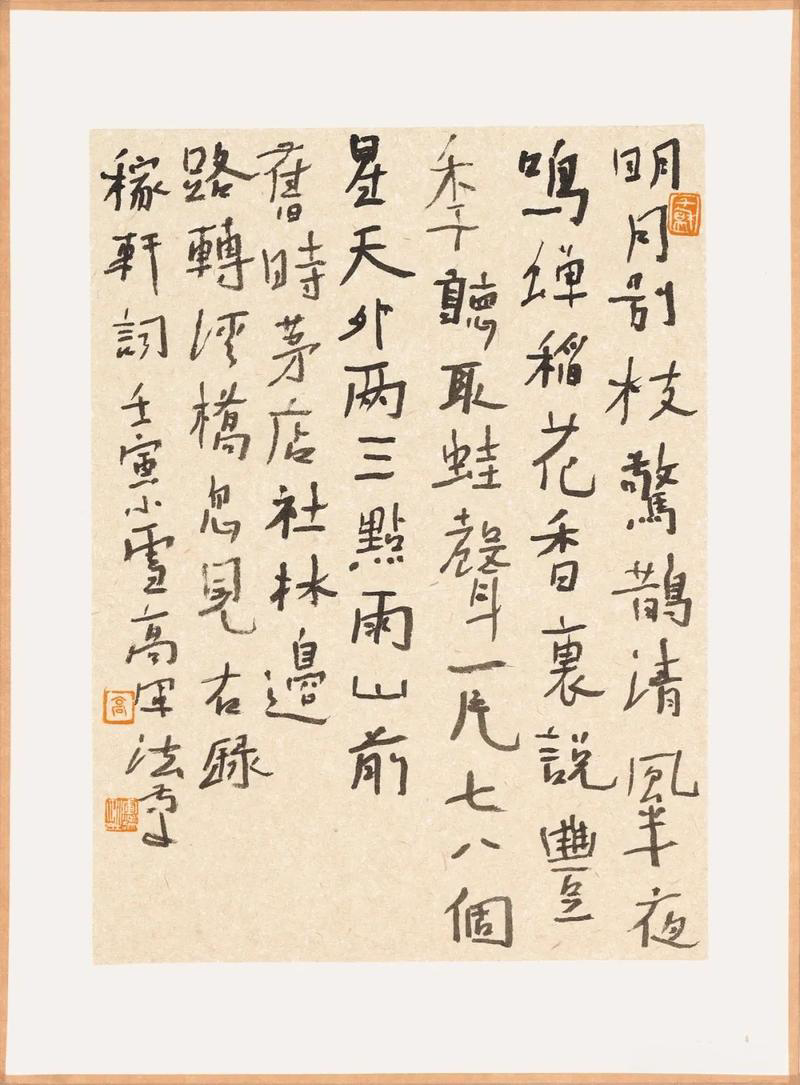 明月別枝驚鵲清風半夜
鳴蟬稻花香裏說豐
秊聽取蛙聲一片七八個
星天外两三點雨山前
舊時茅店社林邊
路轉溪橋忽見右錄
稼軒詞壬寅小雪高軍法書
高